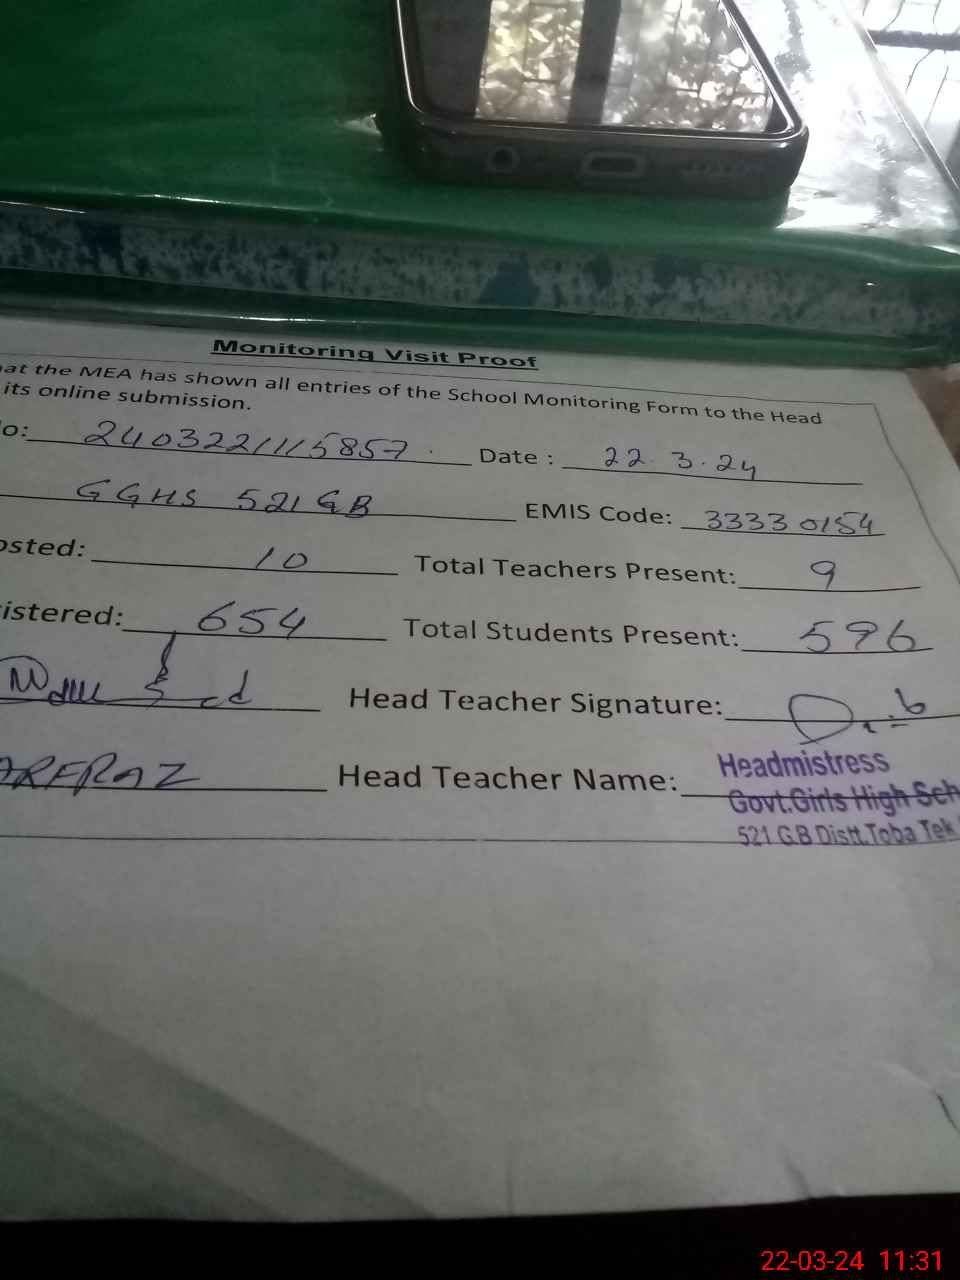 Monitoring Visit Proof
at the MEA has shown all entries of the School Monitoring Form to the Head
its online submission.
o: 2403221115857 Date : 22.3.24
GGHS 521 GB EMIS Code: 33330154
osted: 10 Total Teachers Present: 9
istered: 654 Total Students Present: 596
Head Teacher Signature:
ARFRAZ Head Teacher Name: Headmistress
Govt.Girls High Sch
521 G.B Distt.Toba Tek
22-03-24 11:31